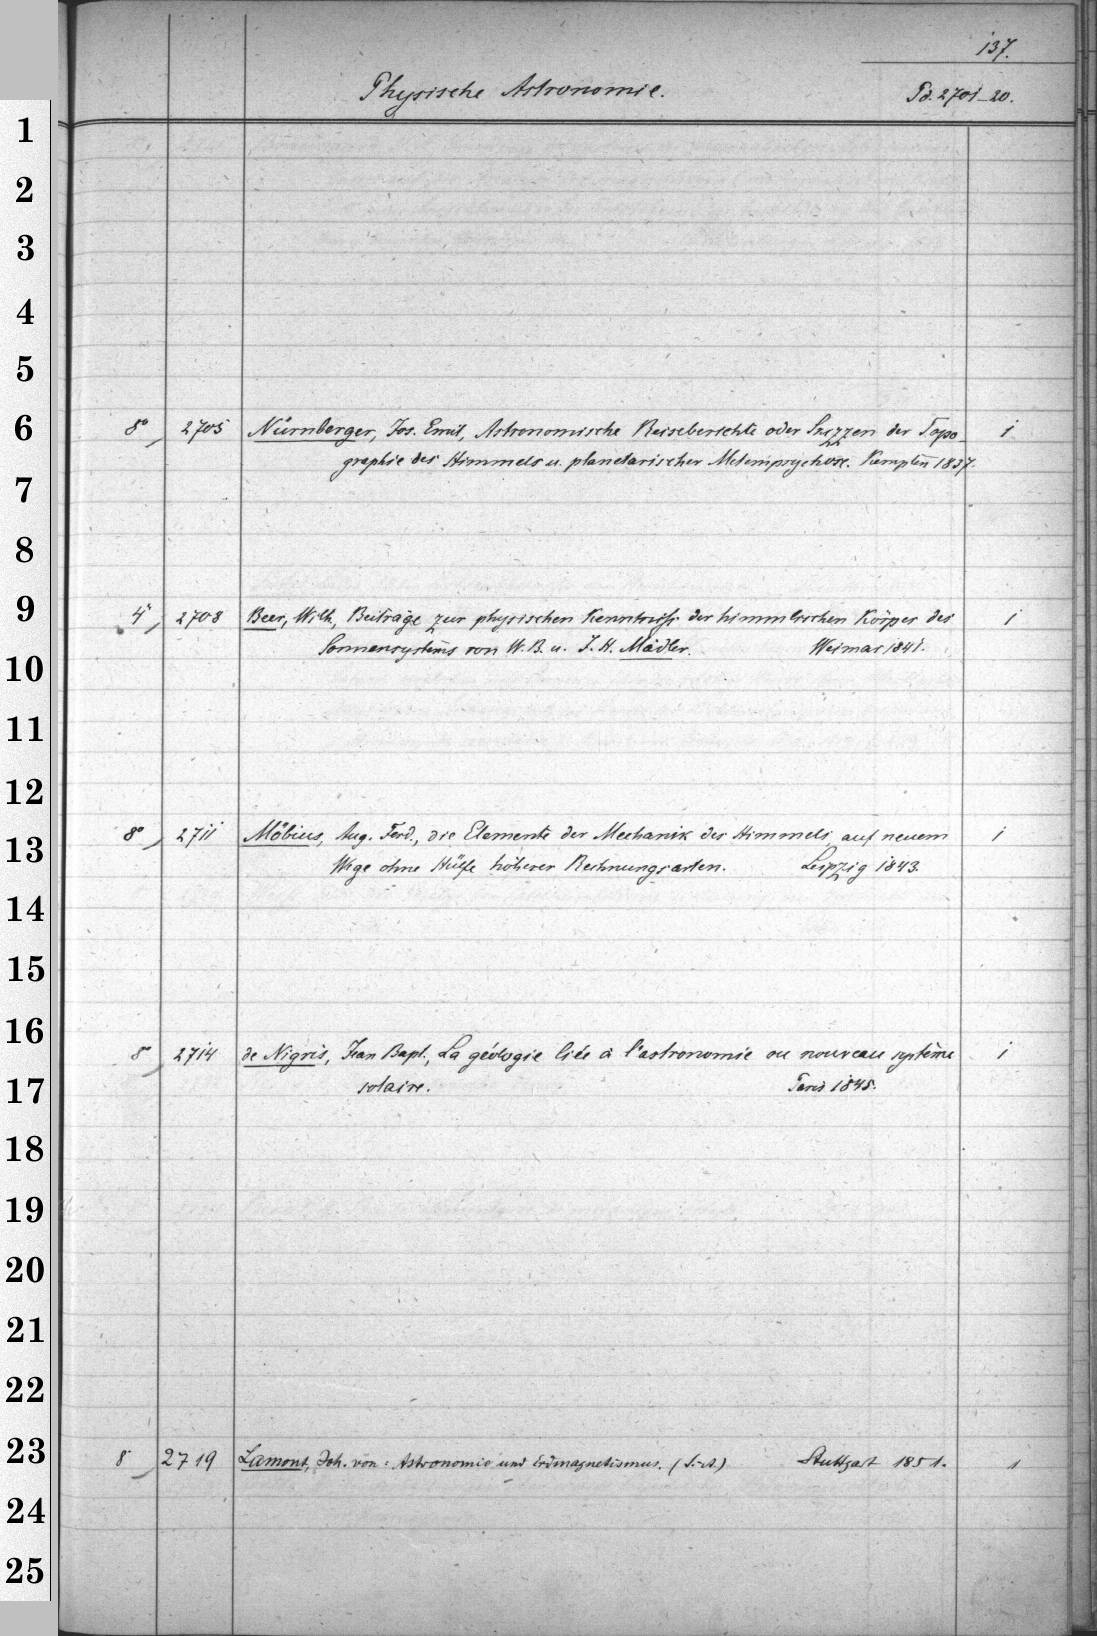 137.
Physische Astronomie. Pd. 2701-20.
1
2
3
4
5
6
8° 2705 Nürnberger, Jos. Emil, Astronomische Reiseberichte oder Skizzen der Topo- 1
graphie des Himmels u. planetarischer Metempsychose. Kempten 1837.
7
8
9
4° 2708 Beer, Wilh., Beiträge zur physischen Kenntniss der himmlischen Körper des 1
Sonnensystems von W. B. u. J. H. Mädler. Weimar 1841.
10
11
12
8° 2711 Möbius, Aug. Ferd., die Elemente der Mechanik des Himmels, auf neuem 1
13
Wege ohne Hülfe höherer Rechnungsarten. Leipzig 1843.
14
15
16
8° 2714 de Nigris, Jean Bapt., La géologie liée à l'astronomie ou nouveau système 1
17
solaire. Paris 1845.
18
19
20
21
22
23
8° 2719 Lamont, Joh. von: Astronomie und Erdmagnetismus. (S.-A.) Stuttgart 1851. 1
24
25